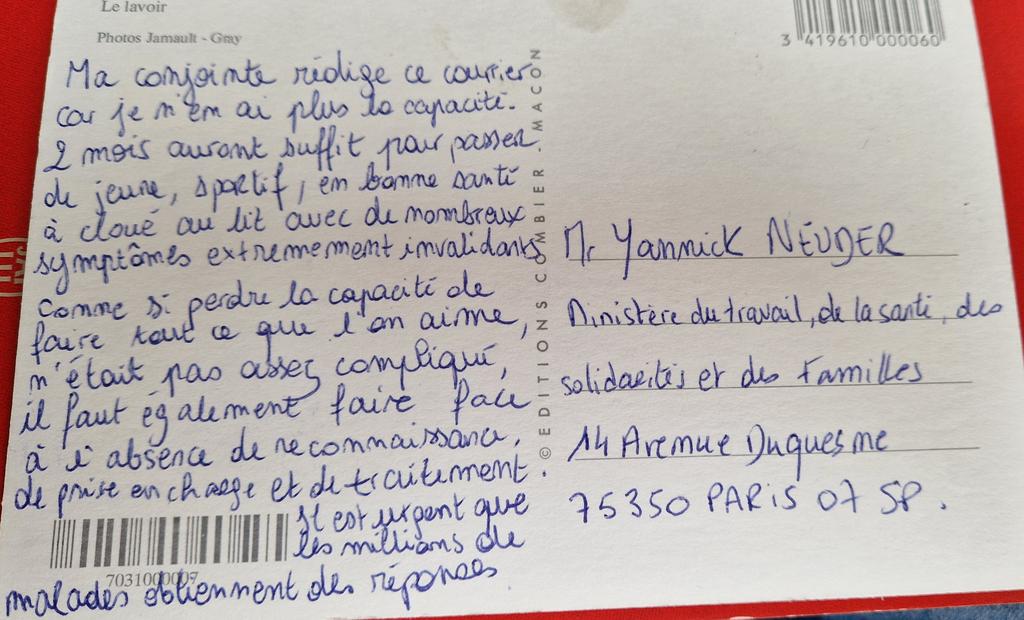 Le lavoir
Photos Jamault - Gray
3 419610 000060
Ma conjointe rédige ce courrier
car je n'en ai plus la capacité.
2 mois auront suffit pour passer
de jeune, sportif, en bonne santé
à cloué au lit avec de nombreux
symptômes extremement invalidants
Comme si perdre la capacité de
faire tout ce que l'on aime,
n'était pas assez compliqué,
il faut également faire face
à l'absence de reconnaissance,
de prise en charge et de traitement.
Il est urgent que
les millions de
malades obtiennent des réponses.
7031000007
© EDITIONS COMBIER MACON
Mr Yannick NEUDER
Ministère du travail, de la santé, des
solidarités et des Familles
14 Avenue Duquesne
75350 PARIS 07 SP.